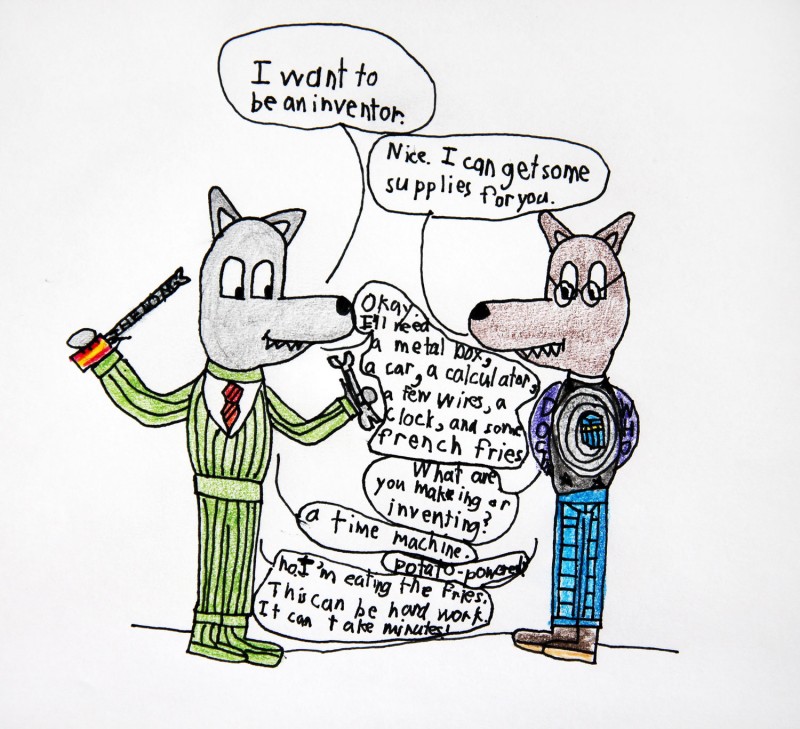 I want to
be an inventor.
Nice. I can get some
supplies for you.
Okay,
I'll need
a metal box,
a car, a calculator,
a few wires, a
clock, and some
french fries
What are
you makeing or
inventing?
a time machine.
potato-powered?
no. I'm eating the fries.
This can be hard work.
It can take minutes!
DOG
WHO